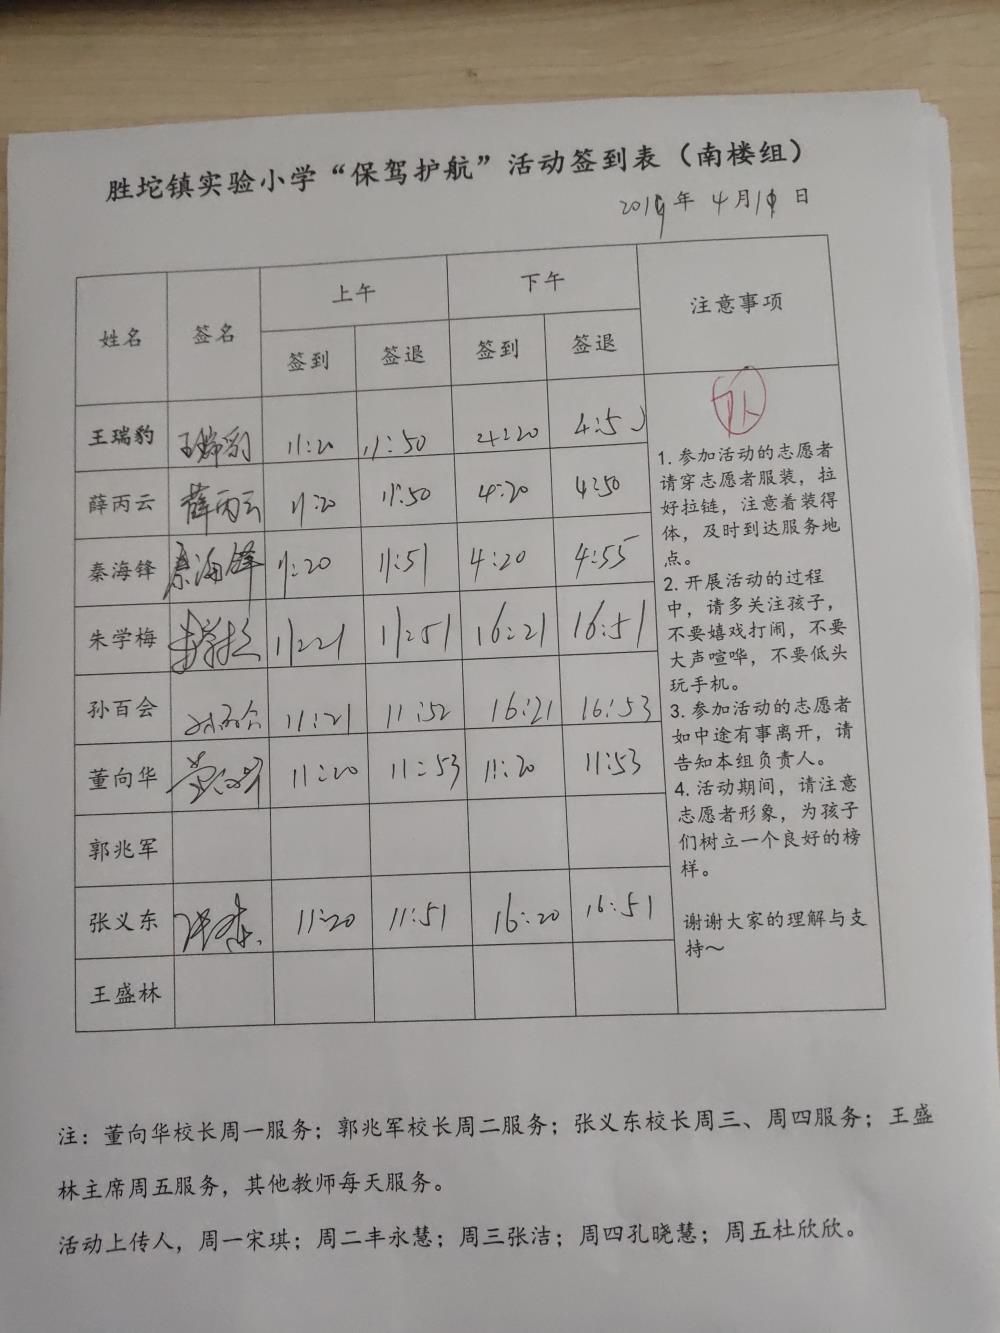 胜坨镇实验小学“保驾护航”活动签到表（南楼组）
2019年 4月 日
姓名 签名 上午 下午 注意事项
签到 签退 签到 签退
王瑞豹 王瑞豹 11:20 11:50 4:20 4:50
薛丙云 薛丙云 11:20 11:50 4:20 4:50
秦海锋 秦海锋 11:20 11:51 4:20 4:55
朱学梅 11:21 11:51 16:21 16:51
孙百会 孙百会 11:21 11:52 16:21 16:53
董向华 董向华 11:20 11:53 11:20 11:53
郭兆军
张义东 张义东 11:20 11:51 16:20 16:51
王盛林
1. 参加活动的志愿者
请穿志愿者服装，拉
好拉链，注意着装得
体，及时到达服务地
点。
2. 开展活动的过程
中，请多关注孩子，
不要嬉戏打闹，不要
大声喧哗，不要低头
玩手机。
3. 参加活动的志愿者
如中途有事离开，请
告知本组负责人。
4. 活动期间，请注意
志愿者形象，为孩子
们树立一个良好的榜
样。
谢谢大家的理解与支
持～
注：董向华校长周一服务；郭兆军校长周二服务；张义东校长周三、周四服务；王盛
林主席周五服务，其他教师每天服务。
活动上传人，周一宋琪；周二丰永慧；周三张洁；周四孔晓慧；周五杜欣欣。